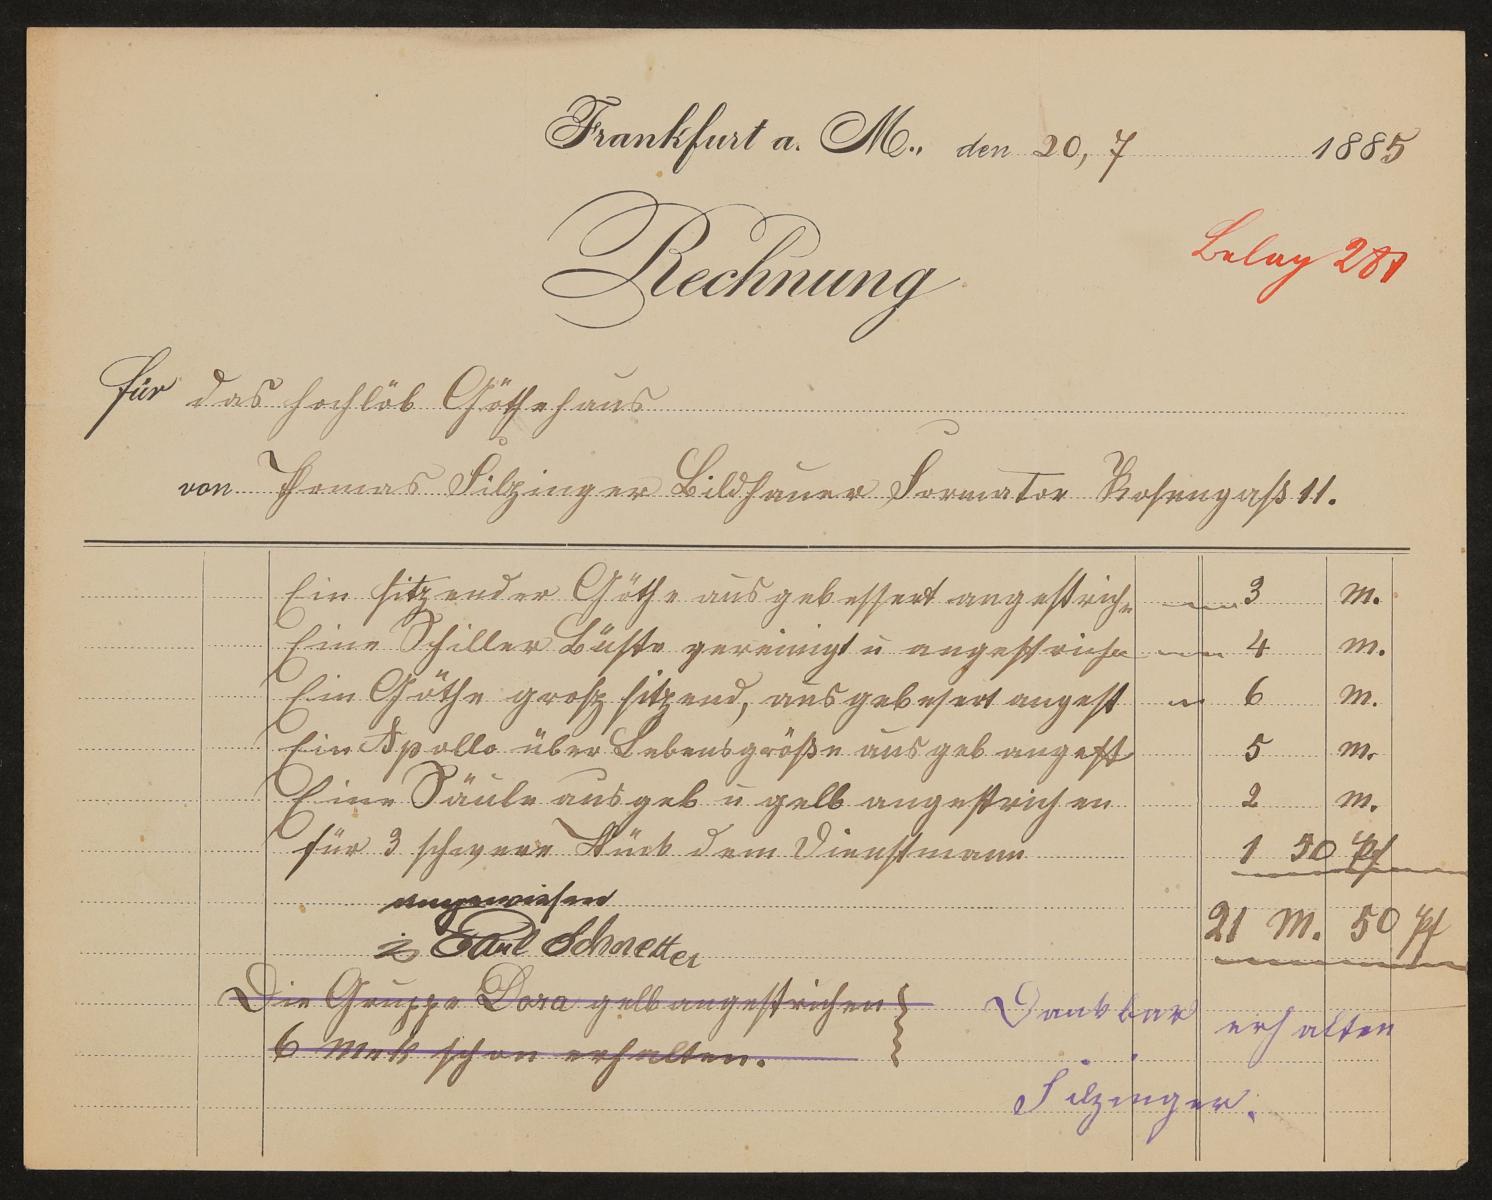 Frankfurt a. M., den 20, 7 1885
Rechnung
Beleg 281
für das hochlöb Göthehaus
von Thomas Filzinger Bildhauer Formator Rosengaß 11.
Ein sitzender Göthe ausgebessert angestrichn 3 M.
Eine Schiller Büste gereinigt u angestrichn 4 M.
Ein Göthe groß sitzend, ausgebesert angest 6 M.
Ein Apollo über Lebensgröße ausgeb angest 5 M.
Eine Säule ausgeb u gelb angestrichen 2 M.
für 3 schwere Stück dem Dienstmann 1 50 Pf
angewiesen 21 M. 50 Pf
Die Gruppe Dora gelb angestrichen
6 Mrk schon erhalten.
Dankbar erhalten
Filzinger.